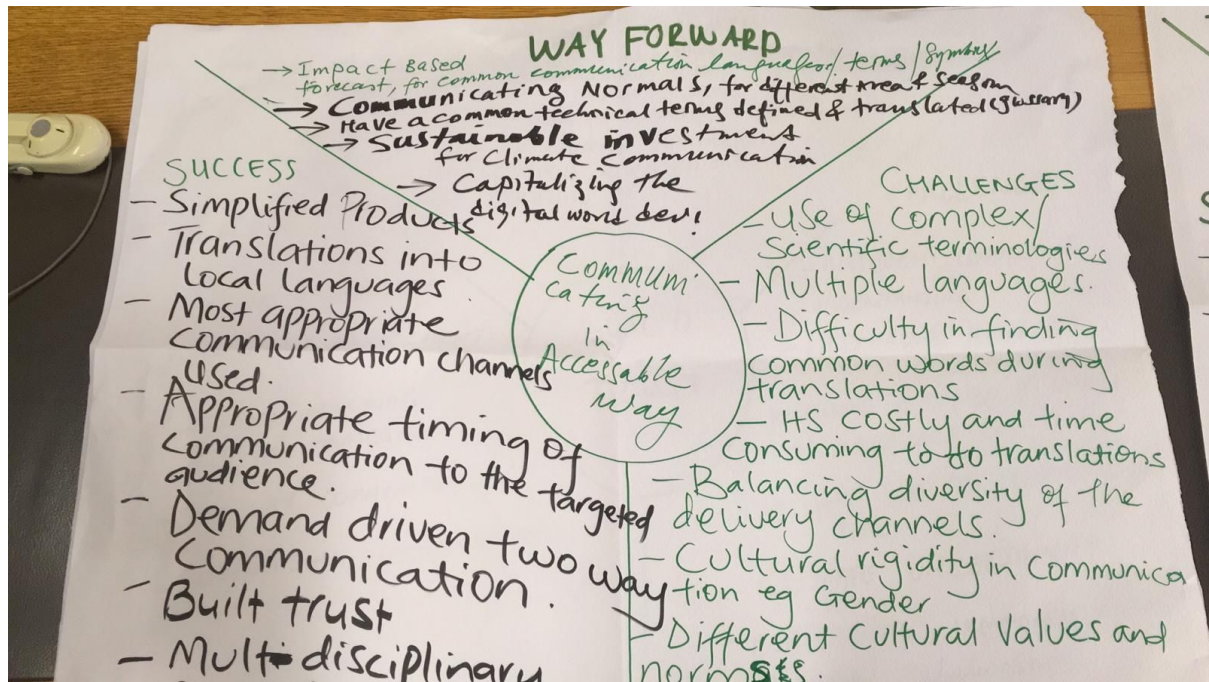 WAY FORWARD
→ Impact Based
forecast, for common communication language for/ terms / Symbols
→ Communicating Normals, for different area & season
→ Have a common technical terms defined & translated (glossary)
→ Sustainable investment
for Climate Communication
→ Capitalizing the
digital world dev!
SUCCESS
- Simplified Products
- Translations into
local languages.
- Most appropriate
Communication channels
used.
- Appropriate timing of
Communication to the targeted
audience.
- Demand driven two way
Communication.
- Built trust
- Multi-disciplinary
Communi
cating
in
Accessable
way
CHALLENGES
- Use of complex/
Scientific terminologies
- Multiple languages.
- Difficulty in finding
common words during
translations
- Its costly and time
Consuming to do translations
- Balancing diversity of the
delivery channels.
- Cultural rigidity in Communica
tion eg Gender
- Different Cultural Values and
norms